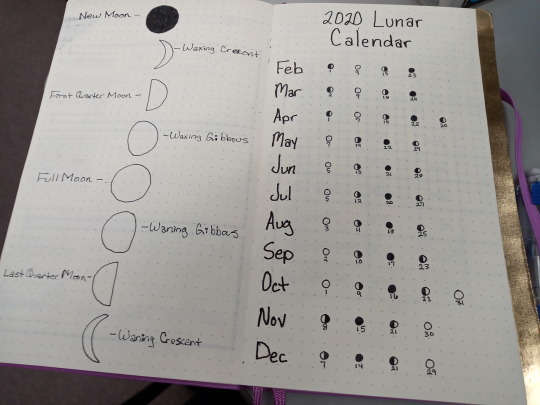 New Moon
Waxing Crescent
First Quarter Moon
Waxing Gibbous
Full Moon
Waning Gibbous
Last Quarter Moon
Waning Crescent
2020 Lunar
Calendar
Feb 9 15 23
Mar 9 16 24
Apr 1 22 30
May 7 14 22 29
Jun 5 13 21 28
Jul 5 12 20 27
Aug 3 11 18 25
Sep 2 10 17 23
Oct 1 9 16 23 31
Nov 8 15 21 30
Dec 7 14 21 29